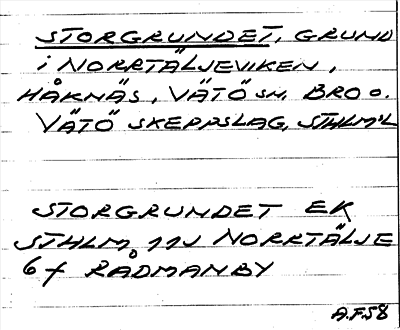 STORGRUNDET, GRUND
i NORRTÄLJEVIKEN,
HÅKNÄS, VÄTÖ SN. BRO O.
VÄTÖ SKEPPSLAG, STHLM'L
STORGRUNDET EK
STHLM 11J NORRTÄLJE
6f RÅDMANBY
A.F.58